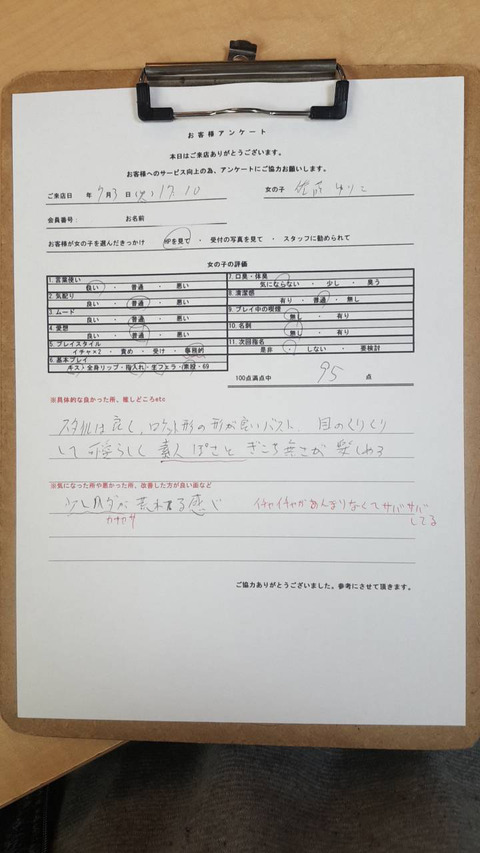 お客様アンケート
本日はご来店ありがとうございます。
お客様へのサービス向上の為、アンケートにご協力お願いします。
ご来店日 年 9月3日(火)17:10 女の子 佐藤 ゆりこ
会員番号： お名前
お客様が女の子を選んだきっかけ HPを見て ・ 受付の写真を見て ・ スタッフに勧められて
女の子の評価
1.言葉使い
良い ・ 普通 ・ 悪い
2.気配り
良い ・ 普通 ・ 悪い
3.ムード
良い ・ 普通 ・ 悪い
4.愛想
良い ・ 普通 ・ 悪い
5.プレイスタイル
イチャ×2 ・ 責め ・ 受け ・ 事務的
6.基本プレイ
キス・全身リップ・指入れ・生フェラ・素股・69
7.口臭・体臭
気にならない ・ 少し ・ 臭う
8.清潔感
有り ・ 普通 ・ 無し
9.プレイ中の喫煙
無し ・ 有り
10.名刺
無し ・ 有り
11.次回指名
是非 ・ しない ・ 要検討
100点満点中 95 点
※具体的な良かった所、推しどころetc
スタイルは良く、ロケット形の形が良いバスト、目のくりくり
して可愛らしく素人ぽさとぎこち無さが楽しめる
※気になった所や悪かった所、改善した方が良い面など
少しハダが荒れてる感じ イチャイチャがあんまりなくてサバサバ
カサカサ してる
ご協力ありがとうございました。参考にさせて頂きます。